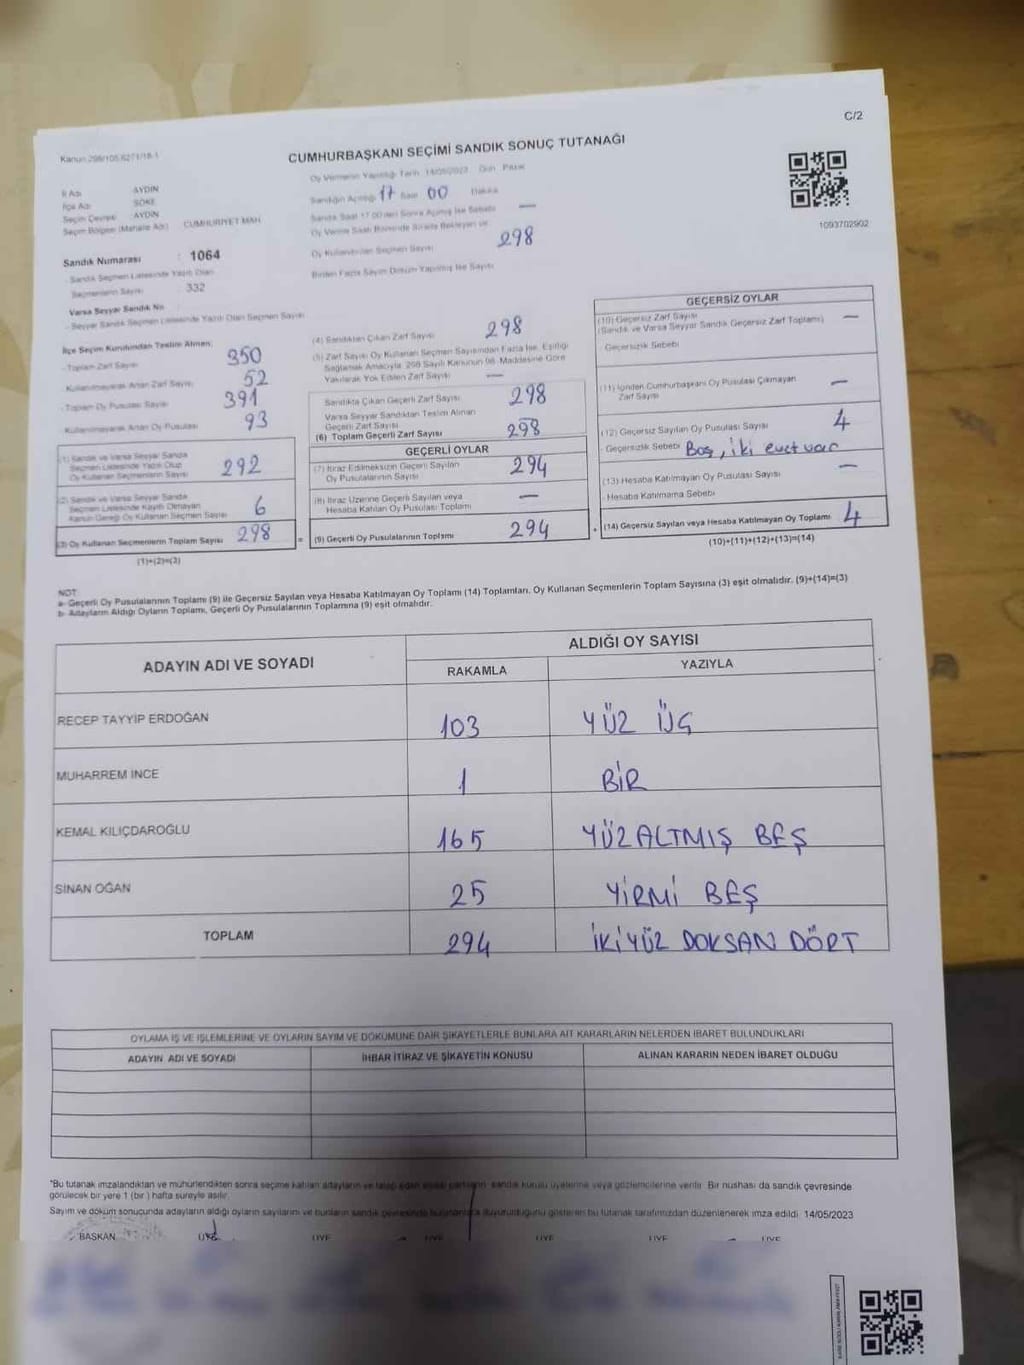 C/2
Kanun:298/105,6271/18-1
CUMHURBAŞKANI SEÇİMİ SANDIK SONUÇ TUTANAĞI
Oy Vermenin Yapıldığı Tarih 14/05/2023 Gün Pazar
İl Adı AYDIN
İlçe Adı SÖKE
Seçim Çevresi AYDIN
Seçim Bölgesi (Mahalle Adı) CUMHURİYET MAH.
Sandık Numarası : 1064
- Sandık Seçmen Listesinde Yazılı Olan
Seçmenlerin Sayısı : 332
Varsa Seyyar Sandık No
- Seyyar Sandık Seçmen Listesinde Yazılı Olan Seçmen Sayısı
Sandığın Açıldığı 17 Saat 00 Dakika
Sandık Saat 17.00'den Sonra Açılmış İse Sebebi —
Oy Verme Saati Bitiminde Sırada Bekleyen ve
Oy Kullandırılan Seçmen Sayısı 298
Birden Fazla Sayım Döküm Yapılmış İse Sayısı
1093702902
İlçe Seçim Kurulundan Teslim Alınan;
- Toplam Zarf Sayısı 350
- Kullanılmayarak Artan Zarf Sayısı 52
- Toplam Oy Pusulası Sayısı 391
- Kullanılmayarak Artan Oy Pusulası 93
(1) Sandık ve Varsa Seyyar Sandık
Seçmen Listesinde Yazılı Olup
Oy Kullanan Seçmenlerin Sayısı 292
(2) Sandık ve Varsa Seyyar Sandık
Seçmen Listesinde Kayıtlı Olmayan
Kanun Gereği Oy Kullanan Seçmen Sayısı 6
(3) Oy Kullanan Seçmenlerin Toplam Sayısı 298
(1)+(2)=(3)
(4) Sandıktan Çıkan Zarf Sayısı 298
(5) Zarf Sayısı Oy Kullanan Seçmen Sayısından Fazla İse, Eşitliği
Sağlamak Amacıyla, 298 Sayılı Kanunun 98. Maddesine Göre
Yakılarak Yok Edilen Zarf Sayısı —
Sandıkta Çıkan Geçerli Zarf Sayısı 298
Varsa Seyyar Sandıktan Teslim Alınan
Geçerli Zarf Sayısı
(6) Toplam Geçerli Zarf Sayısı 298
GEÇERLİ OYLAR
(7) İtiraz Edilmeksizin Geçerli Sayılan
Oy Pusulalarının Sayısı 294
(8) İtiraz Üzerine Geçerli Sayılan veya
Hesaba Katılan Oy Pusulası Toplamı —
= (9) Geçerli Oy Pusulalarının Toplamı 294
GEÇERSİZ OYLAR
(10) Geçersiz Zarf Sayısı —
(Sandık ve Varsa Seyyar Sandık Geçersiz Zarf Toplamı)
Geçersizlik Sebebi
(11) İçinden Cumhurbaşkanı Oy Pusulası Çıkmayan
Zarf Sayısı —
(12) Geçersiz Sayılan Oy Pusulası Sayısı 4
Geçersizlik Sebebi Boş, iki evet var
(13) Hesaba Katılmayan Oy Pusulası Sayısı —
- Hesaba Katılmama Sebebi
+ (14) Geçersiz Sayılan veya Hesaba Katılmayan Oy Toplamı 4
(10)+(11)+(12)+(13)=(14)
NOT:
a- Geçerli Oy Pusulalarının Toplamı (9) ile Geçersiz Sayılan veya Hesaba Katılmayan Oy Toplamı (14) Toplamları, Oy Kullanan Seçmenlerin Toplam Sayısına (3) eşit olmalıdır. (9)+(14)=(3)
b- Adayların Aldığı Oyların Toplamı, Geçerli Oy Pusulalarının Toplamına (9) eşit olmalıdır.
ADAYIN ADI VE SOYADI
ALDIĞI OY SAYISI
RAKAMLA YAZIYLA
RECEP TAYYİP ERDOĞAN 103 YÜZ ÜÇ
MUHARREM İNCE 1 BİR
KEMAL KILIÇDAROĞLU 165 YÜZ ALTMIŞ BEŞ
SİNAN OĞAN 25 YİRMİ BEŞ
TOPLAM 294 İKİ YÜZ DOKSAN DÖRT
OYLAMA İŞ VE İŞLEMLERİNE VE OYLARIN SAYIM VE DÖKÜMÜNE DAİR ŞİKAYETLERLE BUNLARA AİT KARARLARIN NELERDEN İBARET BULUNDUKLARI
ADAYIN ADI VE SOYADI İHBAR İTİRAZ VE ŞİKAYETİN KONUSU ALINAN KARARIN NEDEN İBARET OLDUĞU
*Bu tutanak imzalandıktan ve mühürlendikten sonra seçime katılan adayların ve talep eden siyasi partilerin sandık kurulu üyelerine veya gözlemcilerine verilir. Bir nüshası da sandık çevresinde
görülecek bir yere 1 (bir) hafta süreyle asılır.
Sayım ve döküm sonucunda adayların aldığı oyların sayılarını ve bunların sandık çevresinde bulunanlara duyurulduğunu gösteren bu tutanak tarafımızdan düzenlenerek imza edildi. 14/05/2023
BAŞKAN ÜYE ÜYE ÜYE ÜYE ÜYE